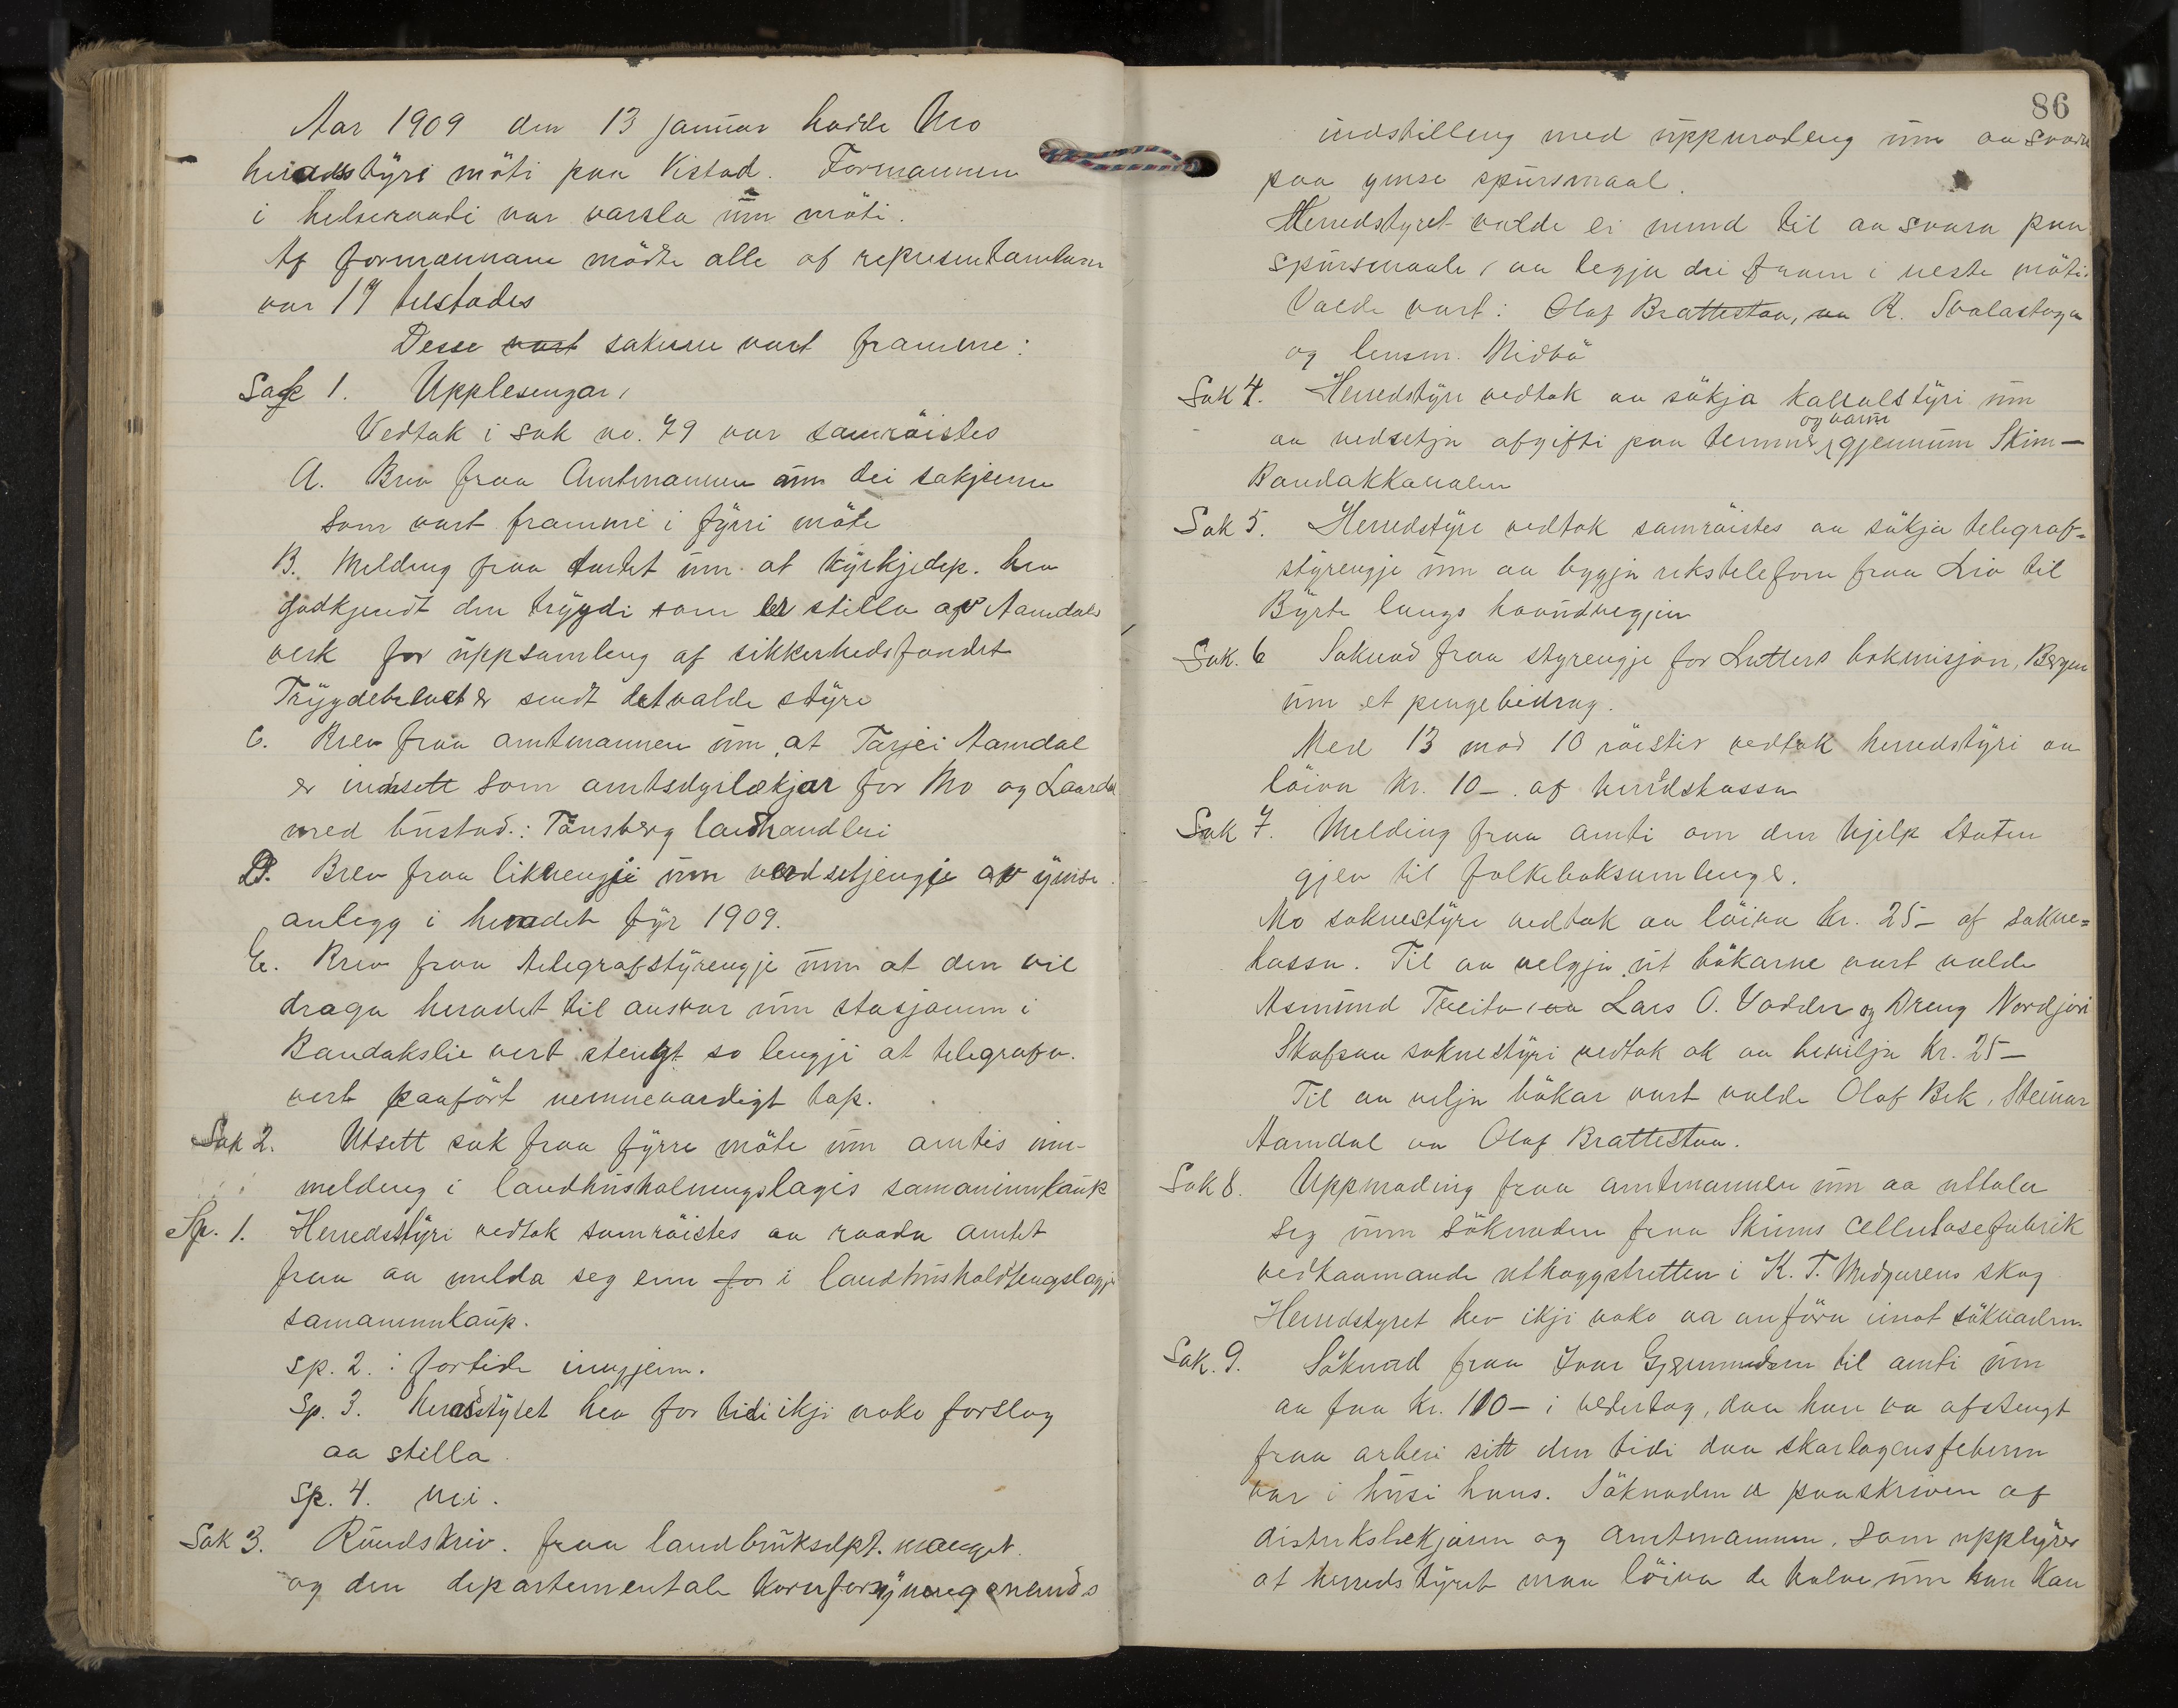 Aar 1909 den 13 januar hadde Mo
heradsstyri möti paa Vistad. Formannen
i helseraadi var varsla um möti.
Af formannane mödte alle af representantarne
var 17 tilstades
Desse vart sakerne vart framme:
Sak 1. Upplesengar,
Vedtak i sak no. 79 var samröistes
A. Brev fraa Amtmannen um dei sakjerne
som vart frammi i fyrri möte
B. Melding fraa amtet um at kyrkjedep. hev
godkjendt den trygdi som er stilla af Aamdals
verk for uppsamleng af sikkerhedsfondet
Trygdebeluet er sendt detvalde styre
C. Brev fraa amtmannen um at Tarjei Aamdal
er indsett som amtsdyrlækjar for Mo og Laardal
med bustad: Tönsberg landhandleri
D. Brev fraa liknengji um verdsetjengje av ymise
anlegg i heradet fyr 1909.
E. Brev fraa telegrafstyrengje um at den vil
draga heradet til ansvar um stasjonen i
Bandakslie vert stengt so lengji at telegrafv.
vert paafört nemnevardigt tap.
Sak 2. Utsett sak fraa fyrre möte um amtis inn-
meldeng i landhusholnungslagis samaninnkaup
Sp. 1. Herredsstyri vedtok samröistes aa raada amtet
fraa aa melda seg inn for i landhusholdsengslagji
samaninnkaup.
Sp. 2. : fortida inngjem.
Sp. 3. Heradsstyret hev for tidi ikji noko forslag
aa stella.
Sp. 4. nei.
Sak 3. Rundskriv. fraa landbruksdept.
og den departementale kornforsynengsnemds
86
indstilleng med uppmodeng um aa svara
paa ymse spursmaal.
Herredstyret valde ei nemnd til aa svara paa
spursmaale, aa legja dei fram i neste möti.
Valde vart: Olaf Brattestaa, aa R. Svalastoga
og lensm. Midbö
Sak 4. Herredstyre vedtok aa sökja kanalstyri um
og varur
aa nedsetja afgifti paa temmer gjennum Skien-
Bandakkanalen
Sak 5. Herredstyre vedtok samröistes aa sökja telegraf=
styrengje um aa byggja rikstelefon fraa Lio til
Byrte langs hovudvegjen
Sak. 6 Soknad fraa styrengje for Lutters bokmisjon, Bergen
um et pengebidrag.
Med 13 mod 10 röistir vedtok herredstyri aa
löiva kr. 10-. af heridskassa
Sak 7. Melding fraa amti om den hjelp staten
gjev til folkeboksamlenger.
Mo soknestyre vedtok aa löiva kr. 25- af sokne=
kassa. Til aa velgja ut bökarne vart valde
Asmund Tveito, aa Lars O. Vadder og Dreng Nordjore
Skafsaa soknestyri vedtok ok aa bevilja kr. 25-
Til aa velja bökar vart valde Olaf Bek, Steinar
Aamdal aa Olaf Brattestaa.
Sak 8. Uppmoding fraa amtmannen um aa uttala
seg um söknaden fraa Skiens cellulosefabrik
vedkaamande uthoggstretten i K. T. Midgarens skog
Herredstyret hev ikji noko aa anföra imot söknaden.
Sak. 9. Söknad fraa Ivar Gjermundsen til amti um
aa faa kr. 110- i vederlag, daa han va afstengt
fraa arbeii sitt den tidi daa skarlagensfeberen
var i husi hans. Söknaden er paaskriven af
distriktslækjaren og amtmannen, som upplyser
at herredstyret maa löiva de halve um han kan